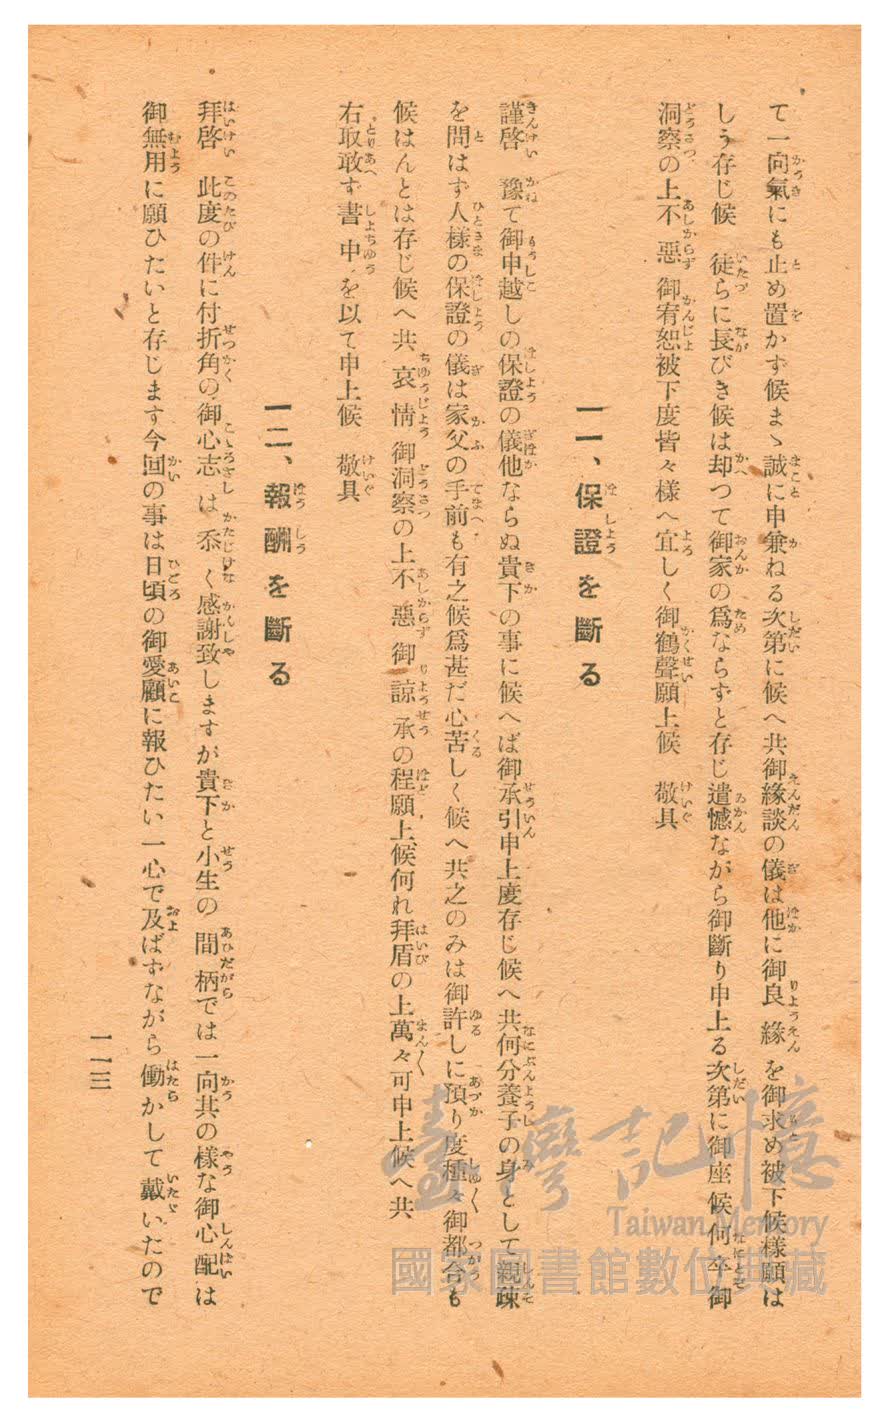 て一向氣にも止め置かず候まゝ誠に申兼ねる次第に候へ共御緣談の儀は他に御良緣を御求め被下候樣願は
しう存じ候　徒らに長びき候は却つて御家の爲ならずと存じ遺憾ながら御斷り申上る次第に御座候何卒御
洞察の上不惡御宥恕被下度皆々樣へ宜しく御鶴聲願上候　敬具
一一、保證を斷る
謹啓　豫て御申越しの保證の儀他ならぬ貴下の事に候へば御承引申上度存じ候へ共何分養子の身として親疎
を問はず人樣の保證の儀は家父の手前も有之候爲甚だ心苦しく候へ共之のみは御許しに預り度種々御都合も
候はんとは存じ候へ共哀情御洞察の上不惡御諒承の程願上候何れ拜眉の上萬々可申上候へ共
右取敢ず書中を以て申上候　敬具
一二、報酬を斷る
拜啓　此度の件に付折角の御心志は忝く感謝致しますが貴下と小生の間柄では一向其の樣な御心配は
御無用に願ひたいと存じます今回の事は日頃の御愛顧に報ひたい一心で及ばずながら働かして戴いたので
一一三
臺灣記憶
Taiwan Memory
國家圖書館數位典藏